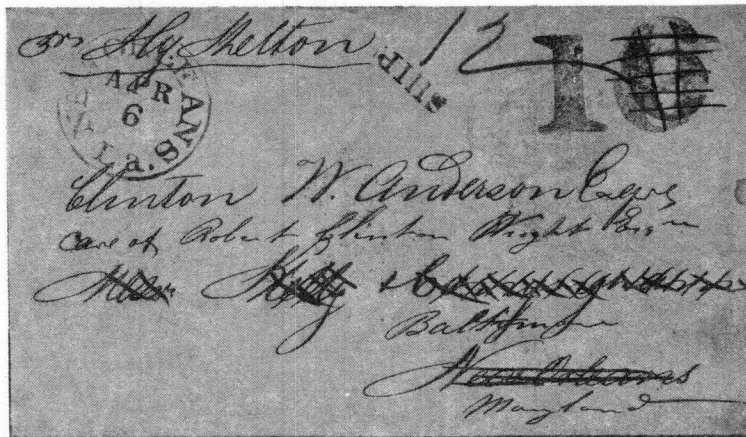 Skelton SHIP 12 10
NEW ORLEANS La. APR 6
Clinton W. Anderson Esqre
Care of Robert Clinton Wright Esqre
Baltimore
New Orleans
Maryland